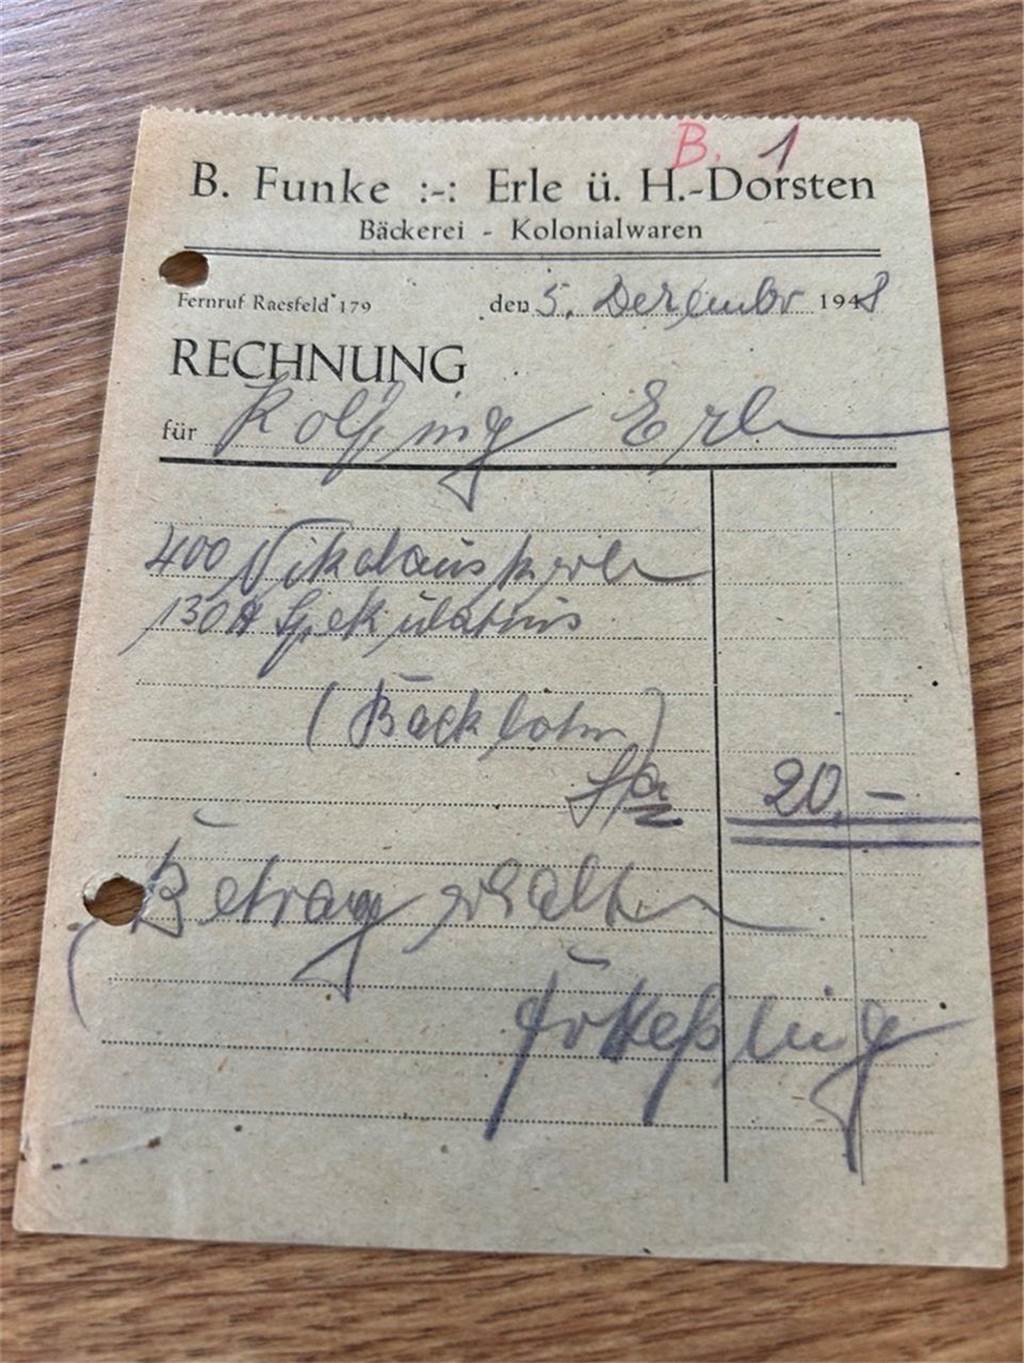 B. 1
B. Funke :-: Erle ü. H.-Dorsten
Bäckerei - Kolonialwaren
Fernruf Raesfeld 179 den 5. Dezember 1948
RECHNUNG
für Kolping Erle
400 Nikolauskerle
130 ℔ Spekulatius
(Backlohn)
20,-
Betrag erhalten